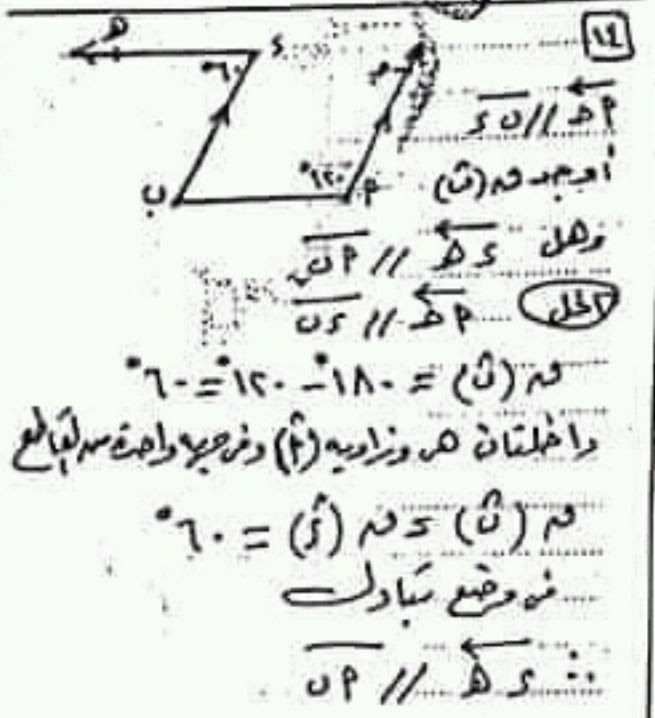 ١٤
هـ
٦٠°
د
حـ
١٢٠°
ب
أ
أحـ // ب د
أوجد ق (ب)
وهل د هـ // أ ب
الحل أحـ // د ب
ق (ب) = ١٨٠° - ١٢٠° = ٦٠°
داخلتان هى وزاوية (أ) وفى جهة واحدة من القاطع
ق (ب) = ق (د) = ٦٠°
فى وضع تبادل
∴ د هـ // أ ب